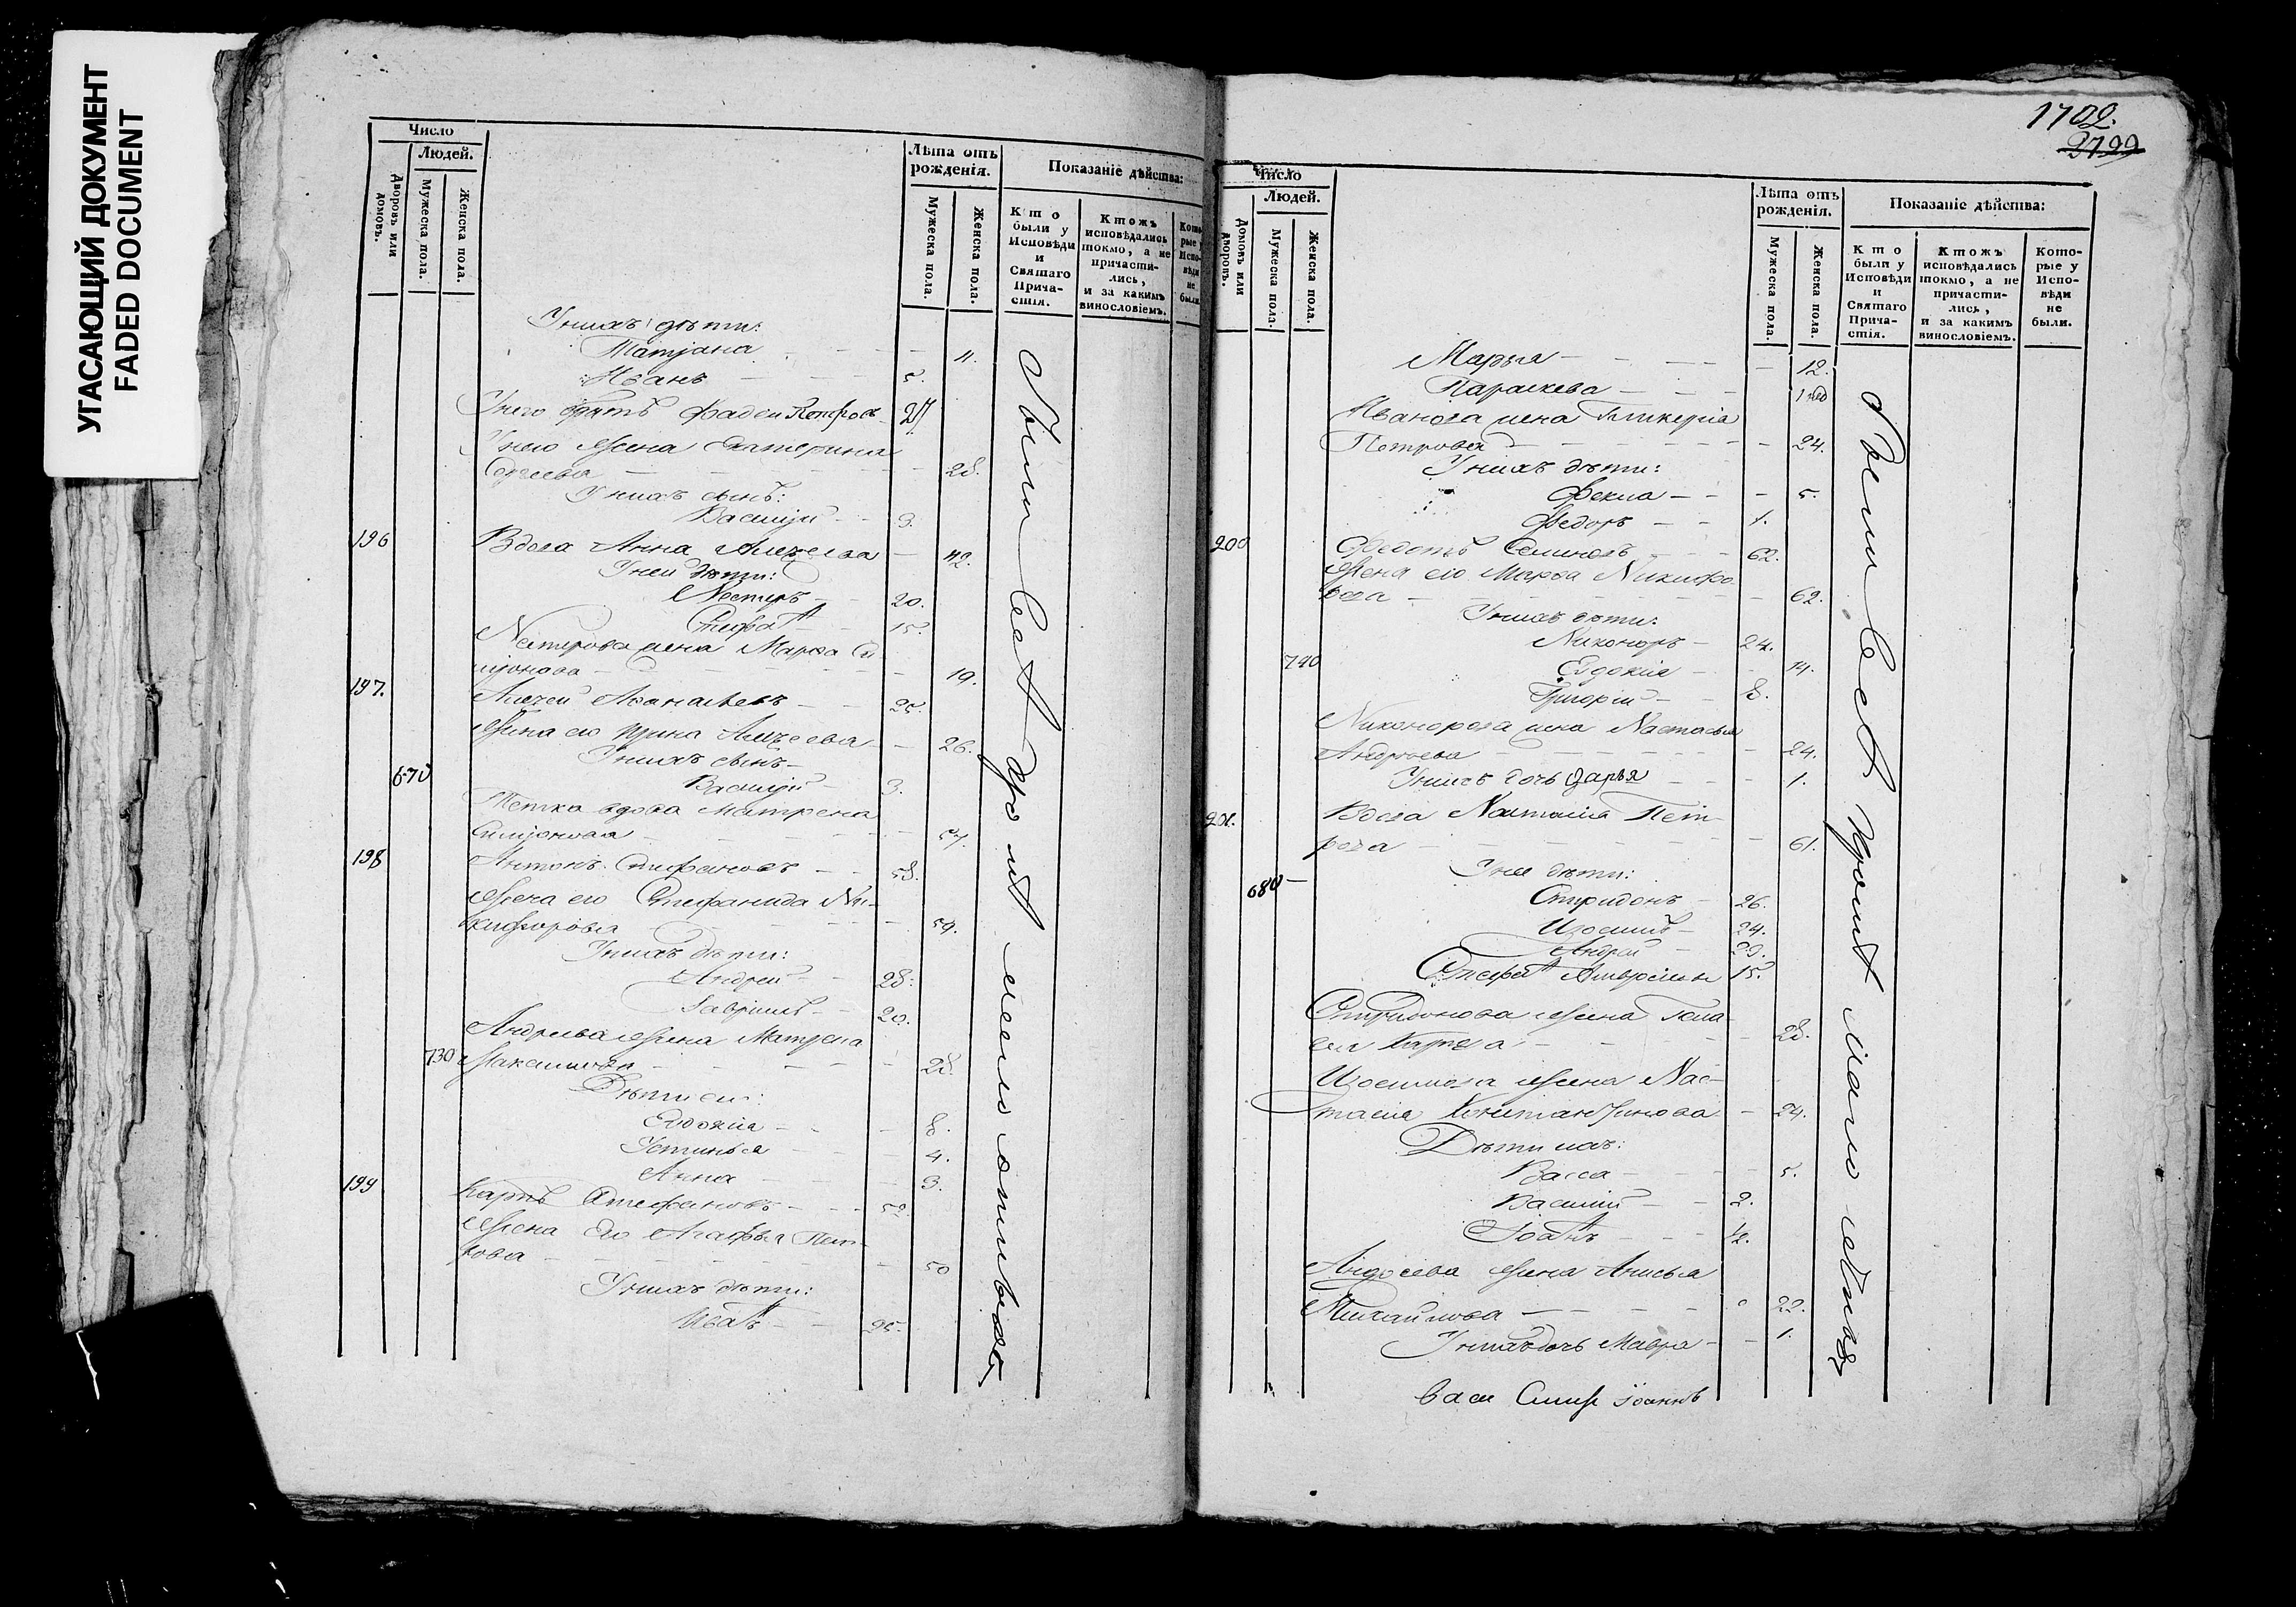 УГАСАЮЩИЙ ДОКУМЕНТ
FADED DOCUMENT
Число
Людей.
Дворовъ или домовъ.
Мужеска пола.
Женска пола.
Лѣта отъ рожденія.
Мужеска пола.
Женска пола.
Показаніе дѣйства:
Кто были у Исповѣди и Святаго Причастія.
Ктожъ исповѣдались токмо, а не причастились, и за какимъ винословіемъ.
Которые у Исповѣди не были.
У нихъ дѣти:
Татіана 11.
Иванъ 5.
У него братъ Фадей
У него жена Екатерина
Сергеева 28.
У нихъ сынъ:
Василій 3.
196 Вдова Анна Алексѣева 42.
У ней дѣти:
Несторъ 20.
15.
Несторова жена Марѳа Си
меонова 19.
197. Алексѣй Аѳанасьевъ 25.
Жена его Ирина Алексѣева 26.
У нихъ сынъ
670 Василій 3.
Тетка вдова Матрена
Симеонова 57.
198 Антонъ Стефановъ 58.
Жена его Стефанида Ни-
кифорова 59.
У нихъ дѣти:
Андрей 28.
Гавріилъ 20.
Андреева жена Матрена
730 Максимова 28.
Дѣти ея:
Евдокія 8.
Устинья 4.
Анна 3.
199 Карпъ Стефановъ 52.
Жена Его Агафья Пет-
рова 50
У нихъ дѣти:
Иванъ 25.
Были вси кро мѣ малолѣтныхъ
1702.
2799
Число
Людей.
Домовъ или дворовъ.
Мужеска пола.
Женска пола.
Лѣта отъ рожденія.
Мужеска пола.
Женска пола.
Показаніе дѣйства:
Кто были у Исповѣди и Святаго Причастія.
Ктожъ исповѣдались токмо, а не причастились, и за какимъ винословіемъ.
Которые у Исповѣди не были.
Марья 12.
Параскева
Иванова жена Гликерія
Петрова 24.
У нихъ дѣти:
Фекла 5.
Федоръ 1.
200 Федотъ Семеновъ 62.
Жена его Марѳа Никифо-
рова 62.
У нихъ дѣти:
Никоноръ 24.
740 Евдокія 14.
Григорій 8.
Никонорова жена Настасья
Андреева 24.
У нихъ дочь Дарья 1.
201. Вдова Настасія Пет-
рова 61.
У нея дѣти:
680 Спиридонъ 26.
Изосимъ 24.
Андрей 23.
15.
Спиридонова жена Пела-
гея Карпова 28.
Изосимова жена Нас-
тасія Константинова 24.
Дѣти ихъ:
Васса 5.
Василій 2.
Іоаннъ ½.
Андреева жена Анисья
Михайлова 22.
У нихъ дочь Мавра 1.
Были вси кромѣ малолѣтныхъ
Іоаннъ